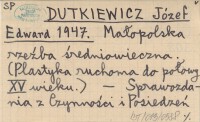 SP
DUTKIEWICZ Józef
Edward 1947. Małopolska
rzeźba średniowieczna
(Plastyka ruchoma do połowy
XV wieku.) – Sprawozda-
nia z Czynności i Posiedzeń